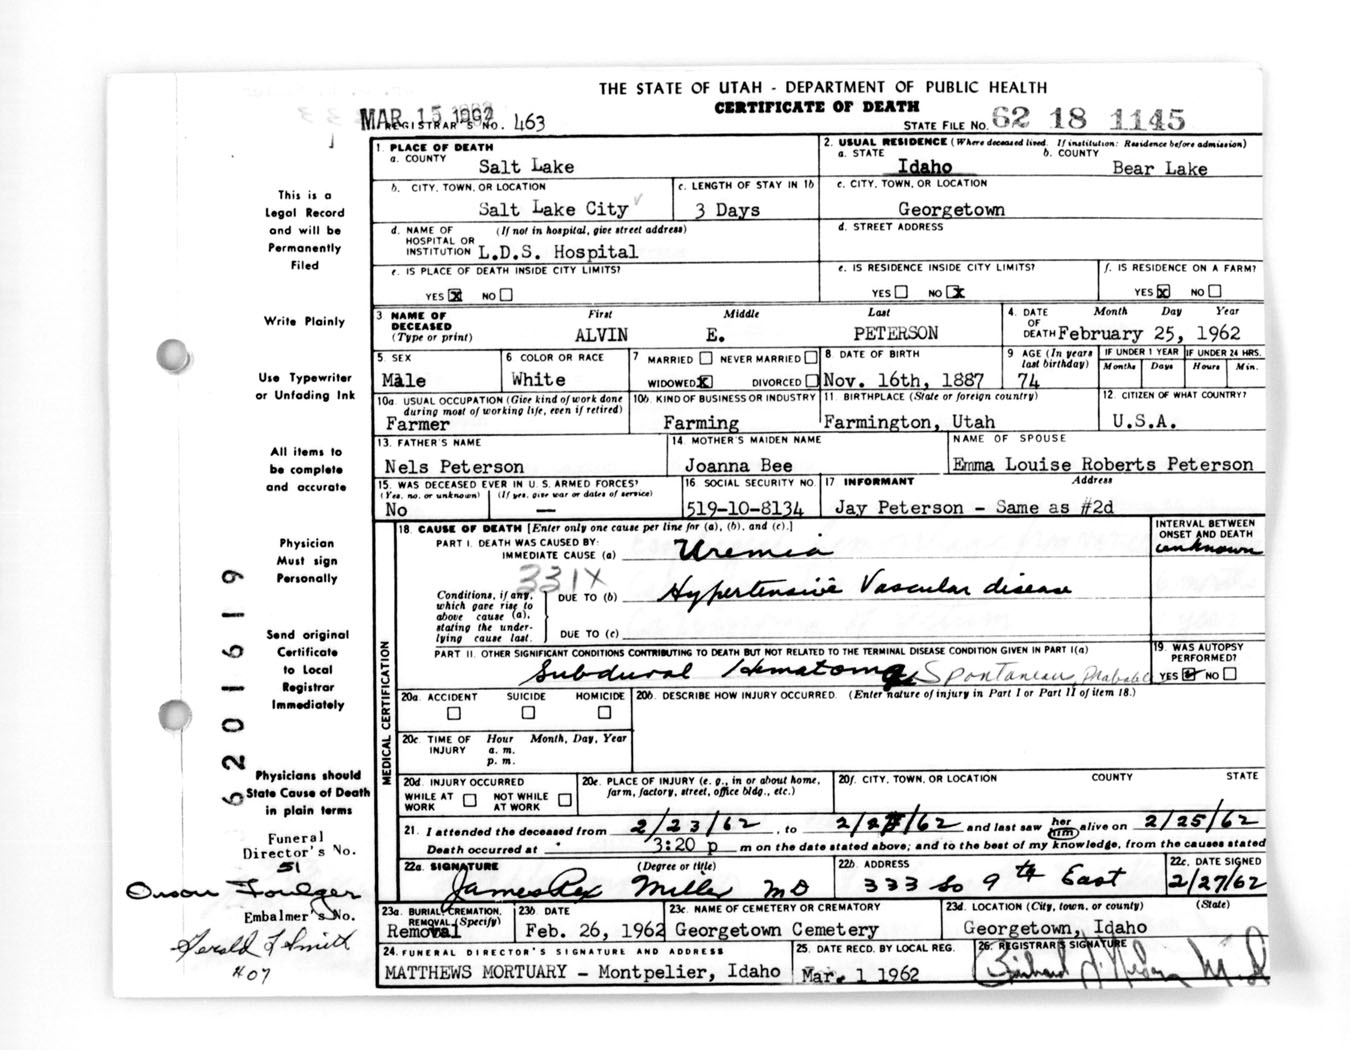 THE STATE OF UTAH - DEPARTMENT OF PUBLIC HEALTH
CERTIFICATE OF DEATH
MAR 15 1962
REGISTRAR'S NO. 463
STATE FILE NO. 62 18 1145
This is a
Legal Record
and will be
Permanently
Filed
Write Plainly
Use Typewriter
or Unfading Ink
All items to
be complete
and accurate
Physician
Must sign
Personally
Send original
Certificate
to Local
Registrar
Immediately
Physicians should
State Cause of Death
in plain terms
Funeral
Director's No.
51
Orson Foulger
Embalmer's No.
Gerald L Smith
#07
6201619
1. PLACE OF DEATH
a. COUNTY
Salt Lake
2. USUAL RESIDENCE (Where deceased lived. If institution: Residence before admission)
a. STATE
Idaho
b. COUNTY
Bear Lake
b. CITY, TOWN, OR LOCATION
Salt Lake City
c. LENGTH OF STAY IN 1b
3 Days
c. CITY, TOWN, OR LOCATION
Georgetown
d. NAME OF HOSPITAL OR INSTITUTION (If not in hospital, give street address)
L.D.S. Hospital
d. STREET ADDRESS
e. IS PLACE OF DEATH INSIDE CITY LIMITS?
YES X NO
e. IS RESIDENCE INSIDE CITY LIMITS?
YES NO X
f. IS RESIDENCE ON A FARM?
YES X NO
3. NAME OF DECEASED (Type or print)
First Middle Last
ALVIN E. PETERSON
4. DATE OF DEATH
Month Day Year
February 25, 1962
5. SEX
Male
6 COLOR OR RACE
White
7 MARRIED NEVER MARRIED
WIDOWED X DIVORCED
8 DATE OF BIRTH
Nov. 16th, 1887
9 AGE (In years last birthday)
74
IF UNDER 1 YEAR
Months Days
IF UNDER 24 HRS.
Hours Min.
10a. USUAL OCCUPATION (Give kind of work done during most of working life, even if retired)
Farmer
10b. KIND OF BUSINESS OR INDUSTRY
Farming
11. BIRTHPLACE (State or foreign country)
Farmington, Utah
12. CITIZEN OF WHAT COUNTRY?
U.S.A.
13. FATHER'S NAME
Nels Peterson
14 MOTHER'S MAIDEN NAME
Joanna Bee
NAME OF SPOUSE
Emma Louise Roberts Peterson
15. WAS DECEASED EVER IN U.S. ARMED FORCES?
(Yes, no, or unknown) (If yes, give war or dates of service)
No —
16 SOCIAL SECURITY NO.
519-10-8134
17 INFORMANT Address
Jay Peterson - Same as #2d
MEDICAL CERTIFICATION
18. CAUSE OF DEATH [Enter only one cause per line for (a), (b), and (c).]
PART I. DEATH WAS CAUSED BY:
IMMEDIATE CAUSE (a) Uremia
INTERVAL BETWEEN ONSET AND DEATH
unknown
331X
Conditions, if any, which gave rise to above cause (a), stating the underlying cause last.
DUE TO (b) Hypertensive Vascular disease
DUE TO (c)
PART II. OTHER SIGNIFICANT CONDITIONS CONTRIBUTING TO DEATH BUT NOT RELATED TO THE TERMINAL DISEASE CONDITION GIVEN IN PART I(a)
Subdural Hematoma Spontaneous Probable
19. WAS AUTOPSY PERFORMED?
YES NO
20a. ACCIDENT SUICIDE HOMICIDE
20b. DESCRIBE HOW INJURY OCCURRED. (Enter nature of injury in Part I or Part II of item 18.)
20c. TIME OF INJURY
Hour Month, Day, Year
a. m.
p. m.
20d. INJURY OCCURRED
WHILE AT WORK NOT WHILE AT WORK
20e. PLACE OF INJURY (e. g., in or about home, farm, factory, street, office bldg., etc.)
20f. CITY, TOWN, OR LOCATION COUNTY STATE
21. I attended the deceased from 2/23/62, to 2/25/62 and last saw her him alive on 2/25/62
Death occurred at 3:20 p m on the date stated above; and to the best of my knowledge, from the causes stated
22a. SIGNATURE (Degree or title)
James Rex Miller MD
22b. ADDRESS
333 So 9th East
22c. DATE SIGNED
2/27/62
23a. BURIAL, CREMATION, REMOVAL (Specify)
Removal
23b. DATE
Feb. 26, 1962
23c. NAME OF CEMETERY OR CREMATORY
Georgetown Cemetery
23d. LOCATION (City, town, or county) (State)
Georgetown, Idaho
24. FUNERAL DIRECTOR'S SIGNATURE AND ADDRESS
MATTHEWS MORTUARY - Montpelier, Idaho
25. DATE RECD. BY LOCAL REG.
Mar. 1 1962
26. REGISTRAR'S SIGNATURE